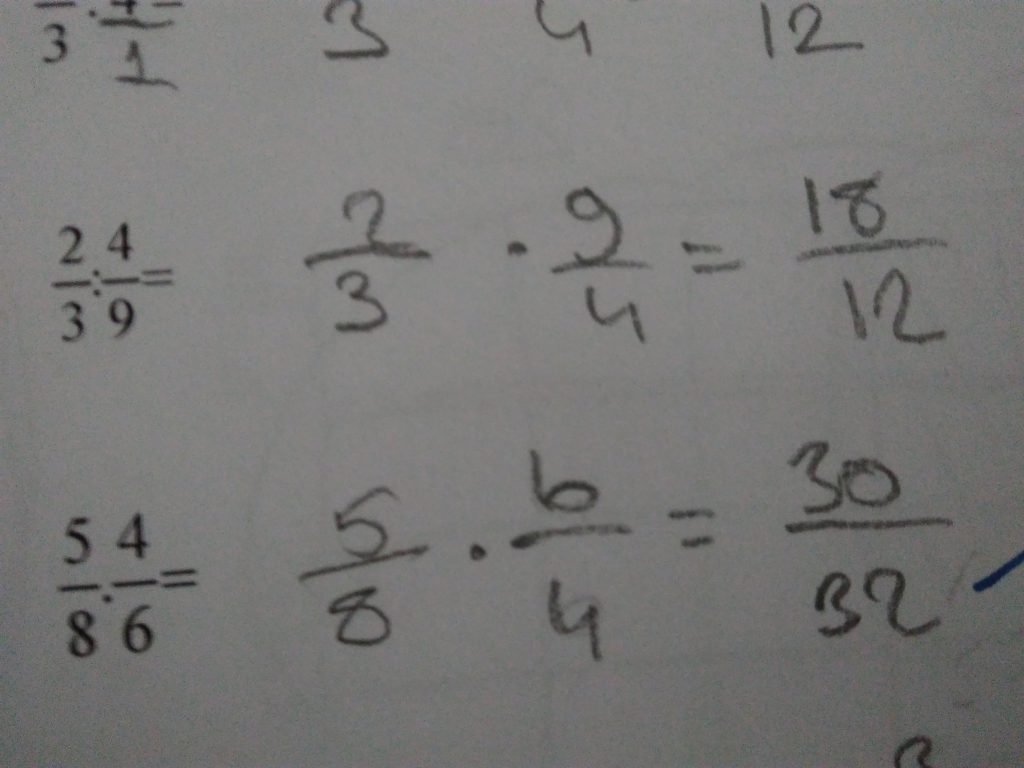 3 1 3 4 12
2/3 : 4/9 = 2/3 · 9/4 = 18/12
5/8 : 4/6 = 5/8 · 6/4 = 30/32